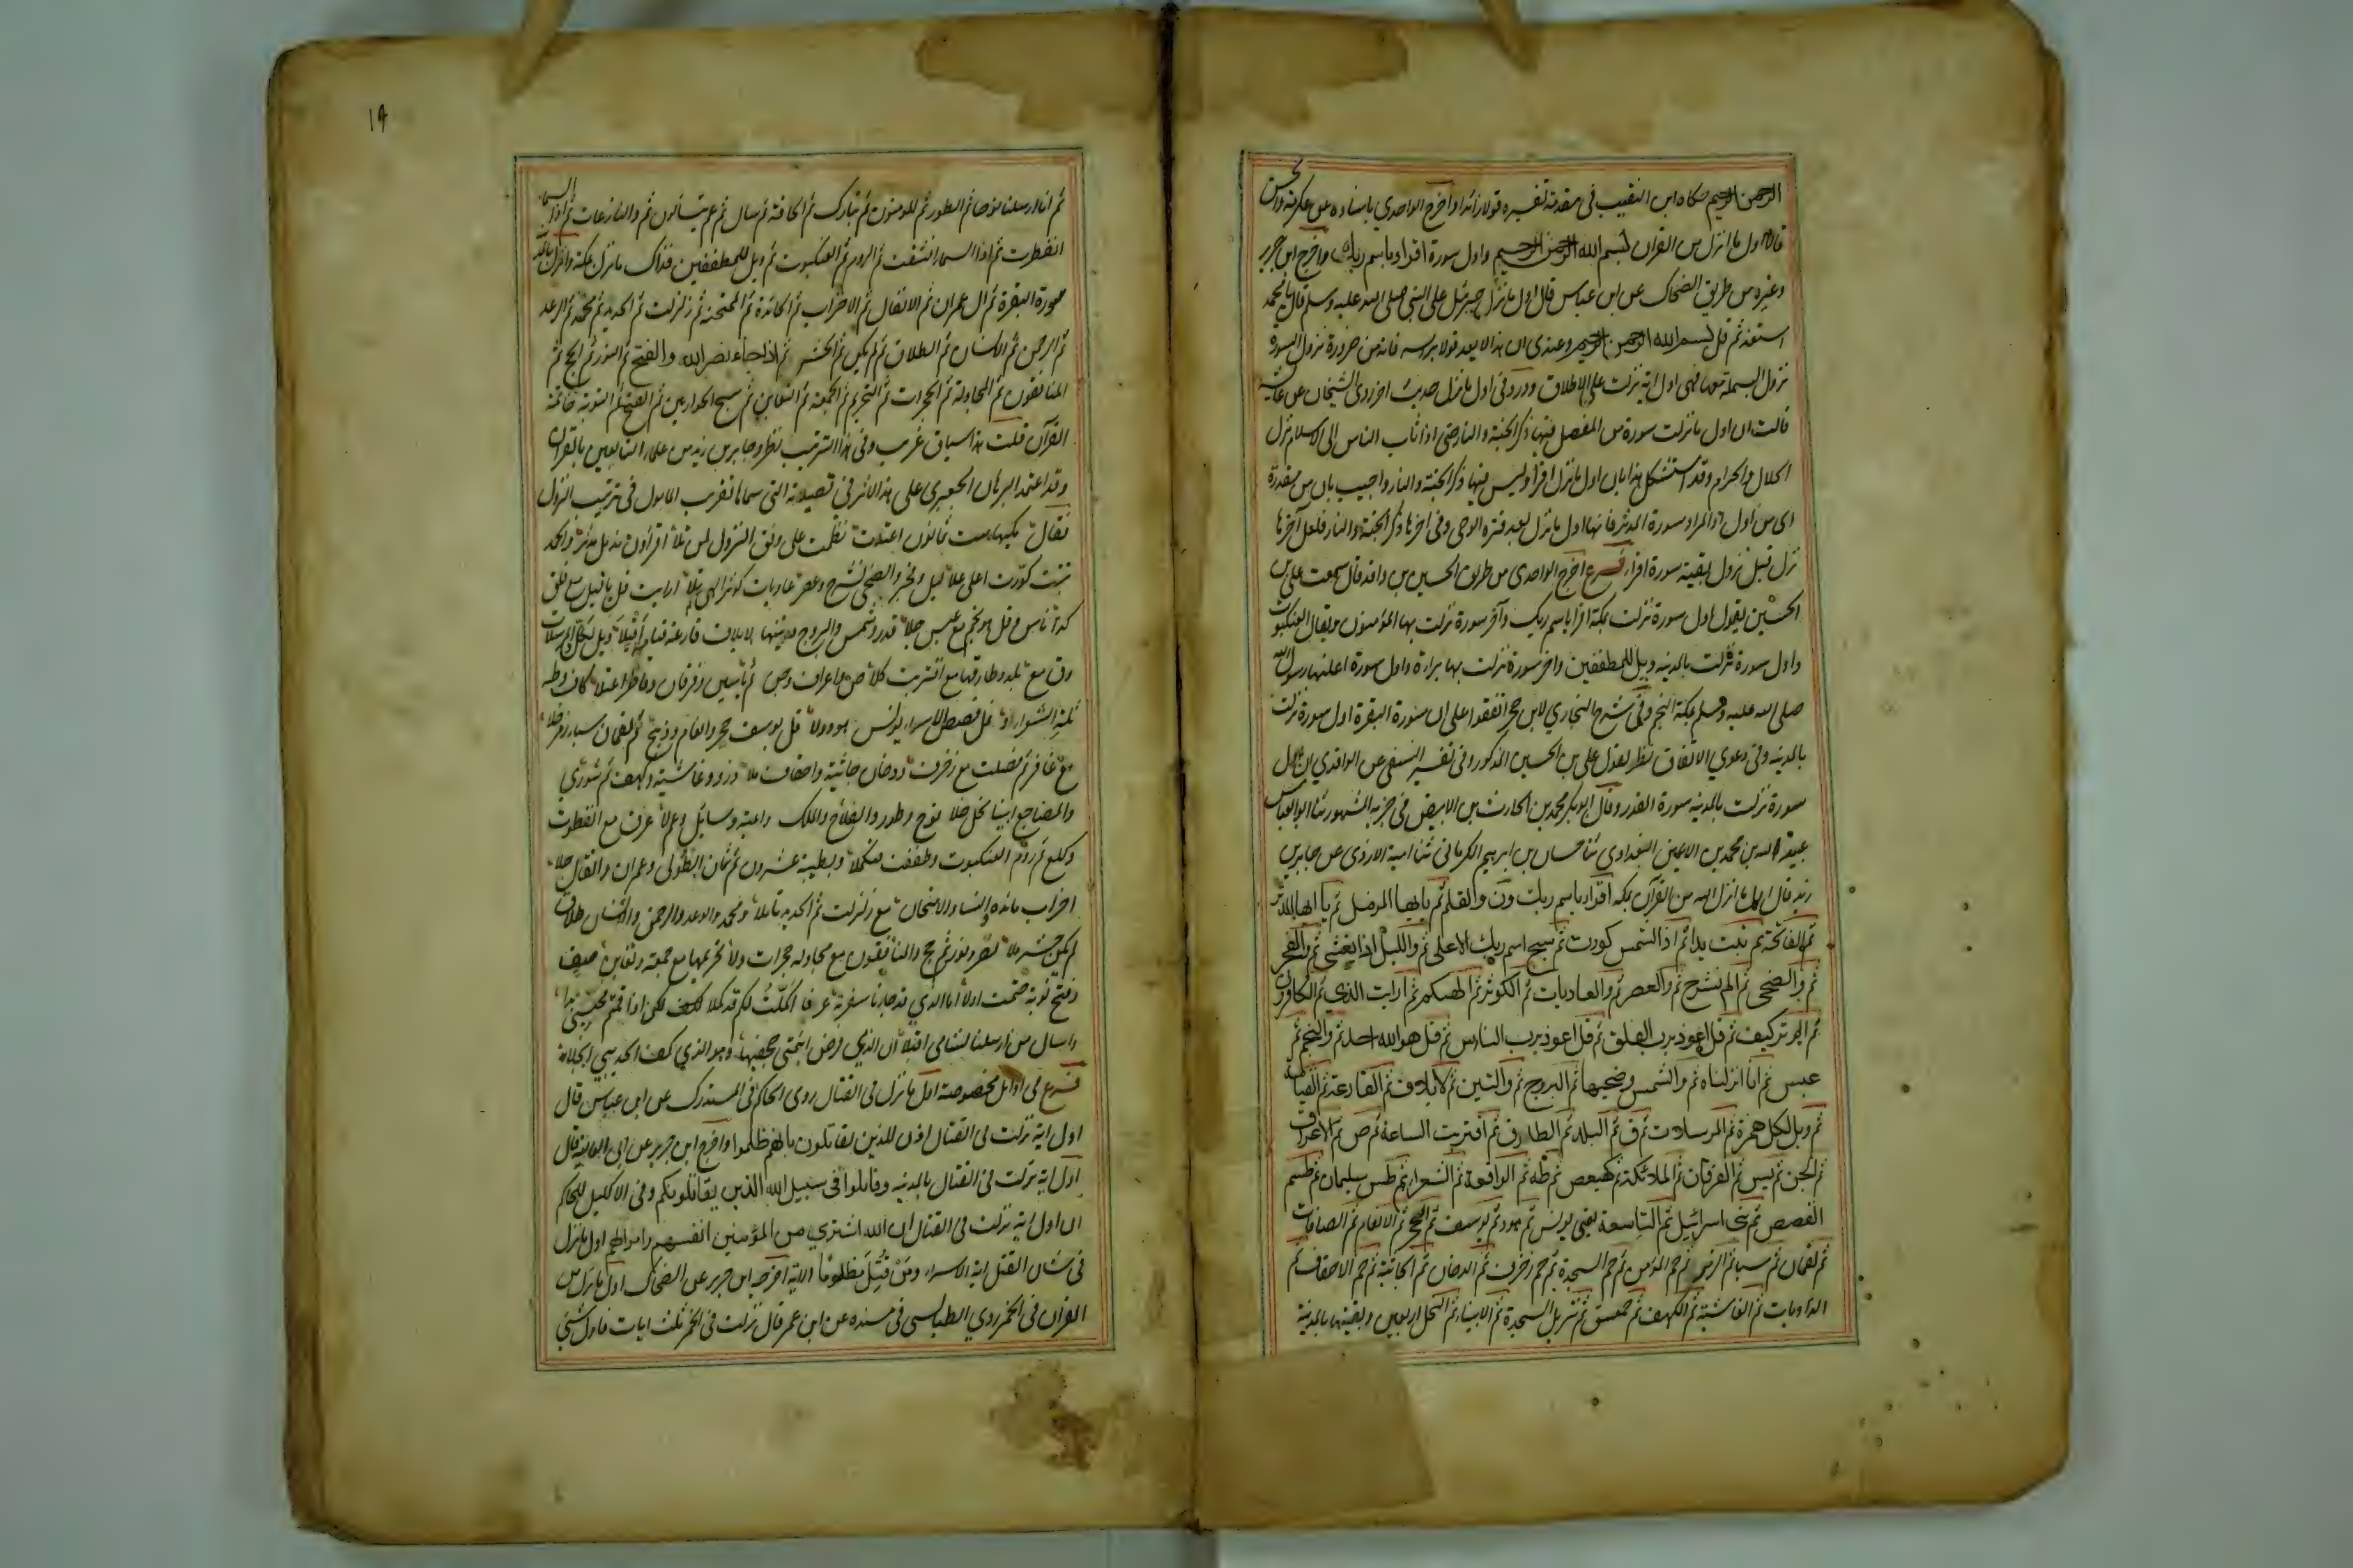 الرحمن الرحيم حكاه ابن النقيب في مقدمة تفسيره قولا زائدا واخرج الواحدي باسناده عن عكرمة والحسن
قالا اول ما انزل من القران بسم الله الرحمن الرحيم واول سورة اقرا باسم ربك واخرج ابن جرير
وغيره من طريق الضحاك عن ابن عباس قال اول ما نزل جبرئيل على النبي صلى الله عليه وسلم قال يا محمد
استعذ ثم قل بسم الله الرحمن الرحيم وعندي ان هذا لا يعد قولا براسه فانه من ضرورة نزول السورة
نزول البسملة معها فهي اول اية نزلت على الاطلاق وورد في اول ما نزل حديث اخر روى الشيخان عن عائشة
قالت ان اول ما نزلت سورة من المفصل فيها ذكر الجنة والنار حتى اذا ثاب الناس الى الاسلام نزل
الحلال والحرام وقد استشكل هذا بان اول ما نزل اقرا وليس فيها ذكر الجنة والنار واجيب بان من مقدرة
اى من اول والمراد سورة المدثر فانها اول ما نزل بعد فترة الوحى وفى اخرها ذكر الجنة والنار فلعل آخرها
نزل قبل نزول بقية سورة اقرا فرع اخرج الواحدى من طريق الحسين بن واقد قال سمعت على بن
الحسين يقول اول سورة نزلت بمكة اقرا باسم ربك وآخر سورة نزلت بها المؤمنون ويقال العنكبوت
واول سورة نزلت بالمدينه ويل للمطففين واخر سورة نزلت بها براءة واول سورة اعلنها رسول الله
صلى الله عليه وسلم بمكة النجم وفى شرح البخاري لابن حجر اتفقوا على ان سورة البقرة اول سورة نزلت
بالمدينه وفى دعوي الاتفاق نظر لقول على بن الحسين المذكور وفى تفسير النسفى عن الواقدي ان اول
سورة نزلت بالمدينه سورة القدر وقال ابو بكر محمد بن الحارث بن الابيض فى جزئه المشهور ثنا ابو العباس
عبيد الله بن محمد بن اعين البغدادي ثنا حسان بن ابرهيم الكرمانى ثنا امية الازدى عن جابر بن
زيد قال اول ما انزل الله من القرآن بمكة اقرا باسم ربك ون والقلم ثم يا ايها المزمل ثم يا ايها المدثر
ثم الفاتحة ثم تبت يدا ثم اذا الشمس كورت ثم سبح اسم ربك الاعلى ثم والليل اذا يغشى ثم والفجر
ثم والضحى ثم الم نشرح ثم والعصر ثم والعاديات ثم الكوثر ثم الهيكم ثم ارايت الذي ثم الكافرون
ثم الم تر كيف ثم قل اعوذ برب الفلق ثم قل اعوذ برب الناس ثم قل هو الله احد ثم والنجم ثم
عبس ثم انا انزلناه ثم والشمس وضحيها ثم البروج ثم والتين ثم لايلاف ثم القارعة ثم القيامة
ثم ويل لكل همزة ثم المرسلات ثم ق ثم البلد ثم الطارق ثم اقتربت الساعة ثم ص ثم الاعراف
ثم الجن ثم يس ثم الفرقان ثم الملائكة ثم كهيعص ثم طه ثم الواقعة ثم الشعراء ثم طس سليمان ثم طسم
القصص ثم بنى اسرائيل ثم التاسعة يعنى يونس ثم هود ثم يوسف ثم الحجر ثم الانعام ثم الصافات
ثم لقمان ثم سبا ثم الزمر ثم حم المؤمن ثم حم السجدة ثم حم زخرف ثم الدخان ثم الجاثية ثم حم الاحقاف ثم
الذاريات ثم الغاشية ثم الكهف ثم حمعسق ثم تنزيل السجدة ثم الانبياء ثم النحل اربعين وبقيتها بالمدينة
١٩
ثم انا ارسلنا نوحا ثم الطور ثم المومنون ثم تبارك ثم الحاقة ثم سال ثم عم يتسألون ثم والنازعات ثم اذا السماء
انفطرت ثم اذا السماء انشقت ثم الروم ثم العنكبوت ثم ويل للمطففين فذاك ما نزل بمكة وانزل بالمدينة
سورة البقرة ثم ال عمران ثم الانفال ثم الاحزاب ثم المائدة ثم الممتحنة ثم زلزلت ثم الحديد ثم محمد ثم الرعد
ثم الرحمن ثم الانسان ثم الطلاق ثم لم يكن ثم الحشر ثم اذا جاء نصر الله والفتح ثم النور ثم الحج ثم
المنافقون ثم المجادلة ثم الحجرات ثم التحريم ثم الجمعة ثم التغابن ثم سبح الحواريين ثم الفتح ثم التوبة خاتمة
القرآن قلت هذا سياق غريب وفى هذا الترتيب نظر وجابر بن زيد من علماء التابعين بالقران
وقد اعتمد البرهان الجعبرى على هذا الاثر فى قصيدته التى سماها تقريب المامول فى ترتيب النزول
فقال مكيها ست ثمانون اعتلت نظمت على وفق النزول لمن تلا اقرا ون مزمل مدثر والحمد
تبت كورت اعلى علا ليل وفجر والضحى شرح وعصر عاديات كوثر الهى تلا ارايت قل يا فيل مع فلق
كذا ناس وقل هو نجم مع عبس جلا قدر وشمس والبروج وتينها لايلاف قارعة قيامة اقبلا ويل لكل المرسلات
وق مع بلد وطارقها مع اقتربت كلا ص واعراف وجن ثم ياسين وفرقان وفاطر اعتلا كاف وطه
ثلة الشعراء و نمل قصص الاسراء يونس هود ولا قل يوسف حجر وانعام وذبح ثم لقمان سبا زمر خلا
مع غافر ثم فصلت مع زخرف ودخان جاثية واحقاف تلا ذرو وغاشية وكهف ثم شورى
والمضاجع انبيا نحل حلا نوح وطور والفلاح والملك واعية وسايل وعم لا غرق مع انفطرت
وكدح ثم روم العنكبوت وطففت فتكملا وبطيبة عشرون ثم ثمان الطولى وعمران وانفال جلا
احزاب مائدة والنساء والامتحان مع زلزلت ثم الحديد تاملا ومحمد والرعد والرحمن والانسان طلاق
لم يكن حشر ملا نصر ونور ثم حج والمنافقون مع مجادلة حجرات ولا تحريمها مع جمعة وتغابن صف
وفتح توبة ختمت اولا اما الذي قد جاءنا سفرية عرفا اكملت لكم قد كملا لكن اذا قمتم فجيشى بدا
واسال من ارسلنا لشامى اقبلا ان الذي فرض انتمى جحفيها وهو الذي كف الحديبى انجلا
فرع فى اوائل مخصوصة اول ما نزل فى القتال روى الحاكم فى المستدرك عن ابن عباس قال
اول اية نزلت فى القتال اذن للذين يقاتلون بانهم ظلموا واخرج ابن جرير عن ابى العالية قال
اول اية نزلت فى القتال بالمدينه وقاتلوا فى سبيل الله الذين يقاتلونكم وفى الاكليل للحاكم
ان اول اية نزلت فى القتال ان الله اشترى من المؤمنين انفسهم واموالهم اول ما نزل
فى شان القتل اية الاسراء ومن قتل مظلوما الاية اخرجه ابن جرير عن الضحاك اول ما نزل من
القران فى الخمر روي الطيالسى فى مسنده عن ابن عمر قال نزلت فى الخمر ثلث ايات فاول شئ